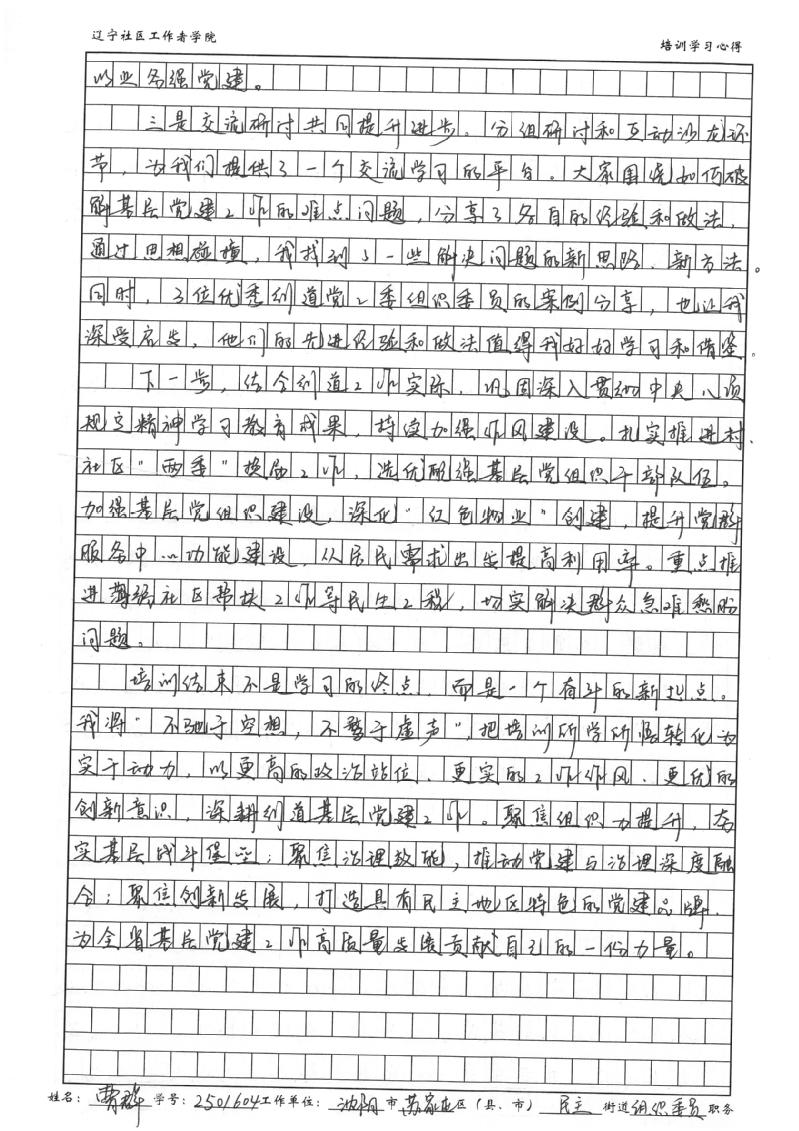 辽宁社区工作者学院
培训学习心得
以业务强党建。
三是交流研讨共同提升进步。分组研讨和互动沙龙环
节，为我们提供了一个交流学习的平台。大家围绕如何破
解基层党建工作的难点问题，分享了各自的经验和做法，
通过思想碰撞，我找到了一些解决问题的新思路、新方法。
同时，3位优秀街道党工委组织委员的案例分享，也让我
深受启发，他们的先进经验和做法值得我好好学习和借鉴。
下一步，结合街道工作实际，巩固深入贯彻中央八项
规定精神学习教育成果，持续加强作风建设。扎实推进村、
社区"两委"换届工作，选优配强基层党组织干部队伍。
加强基层党组织建设，深化"红色物业"创建，提升党群
服务中心功能建设，从居民需求出发提高利用率。重点推
进薄弱社区帮扶工作等民生工程，切实解决群众急难愁盼
问题。
培训结束不是学习的终点，而是一个奋斗的新起点。
我将"不驰于空想，不骛于虚声"，把培训所学所悟转化为
实干动力，以更高的政治站位、更实的工作作风、更优的
创新意识，深耕街道基层党建工作。聚焦组织力提升，夯
实基层战斗堡垒；聚焦治理效能，推动党建与治理深度融
合；聚焦创新发展，打造具有民主地区特色的党建品牌，
为全省基层党建工作高质量发展贡献自己的一份力量。
姓名：曹群 学号：2501604 工作单位：沈阳市苏家屯区（县、市）民主街道组织委员职务